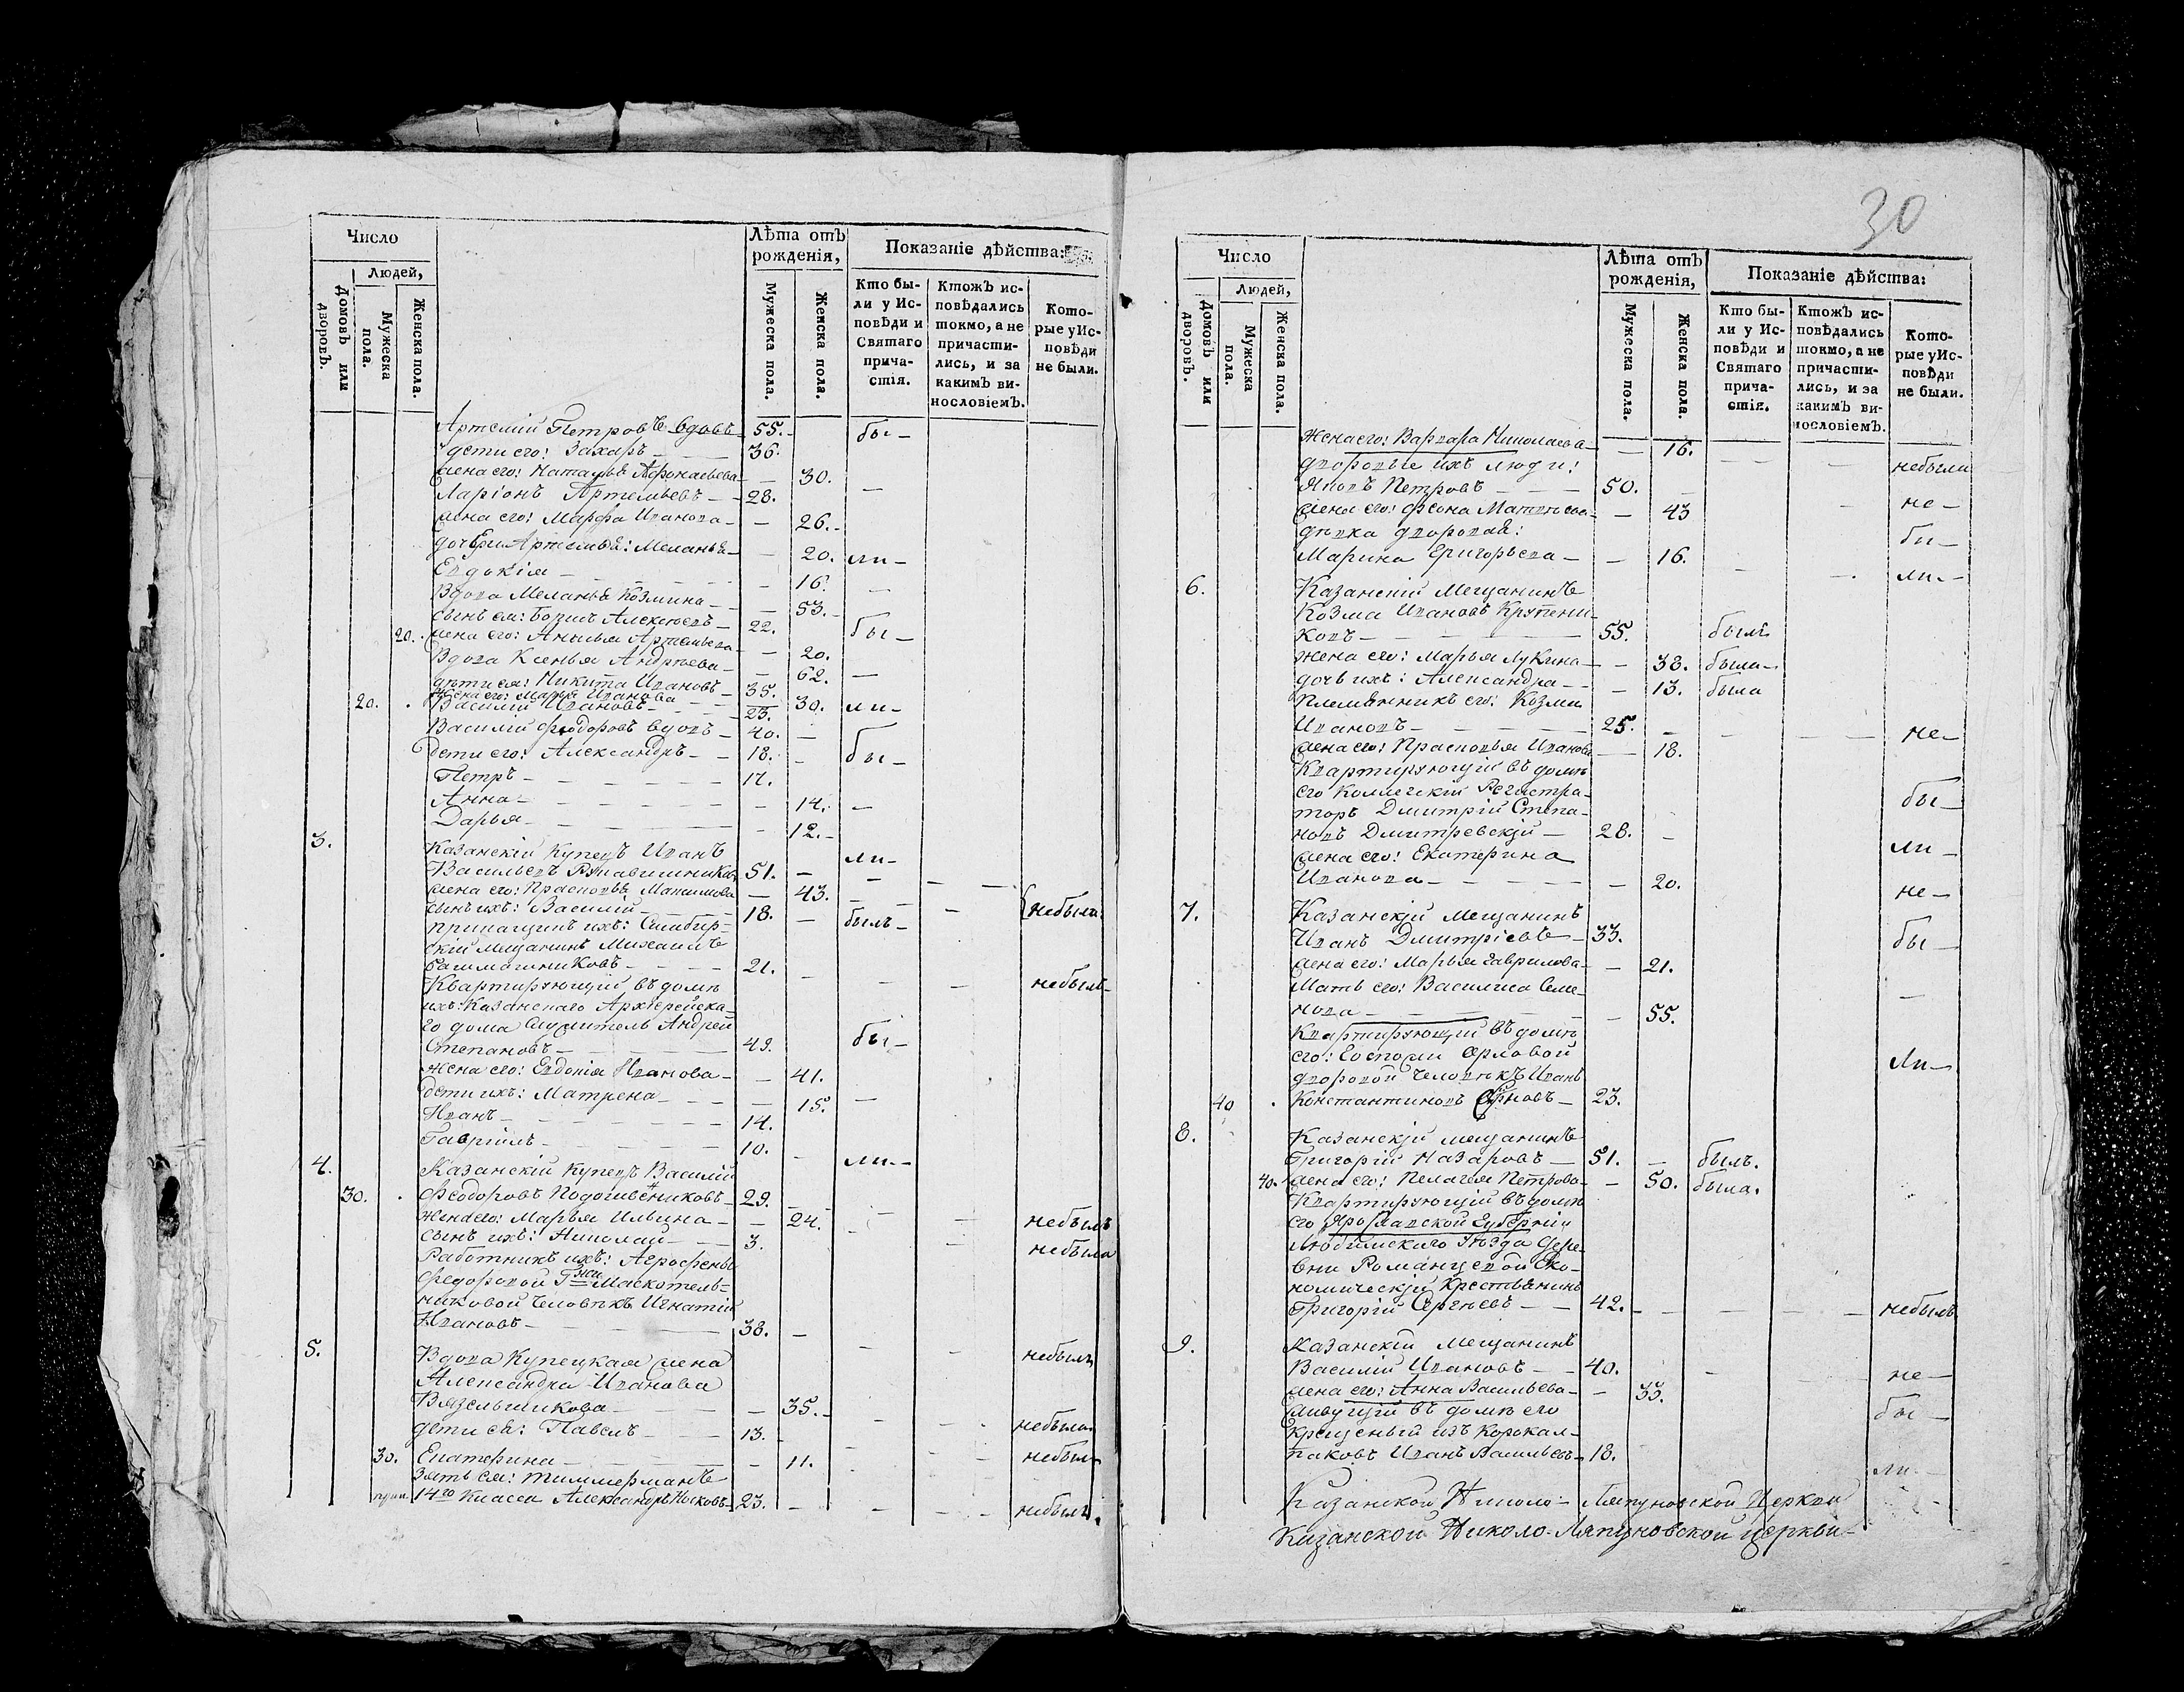 Число
Лѣта отъ рожденія,
Показаніе дѣйства:
Людей,
Домовъ или дворовъ.
Мужеска пола.
Женска пола.
Мужеска пола.
Женска пола.
Кто были у Исповѣди и Святаго причастія.
Ктожъ исповѣдались токмо, а не причастились, и за какимъ винословіемъ.
Которые у Исповѣди не были.
Артемій Петровъ вдовъ 55. бы-
дети его: Захаръ 36.
жена его: Наталья Афонасьева 30.
Ларіонъ Артемьевъ 28.
жена его: Марфа Иванова 26.
дочери Артемья: Меланья 20. ли-
Евдокія 16.
Вдова Меланья Козмина 53.
сынъ ея: Борисъ Алексѣевъ 22. бы-
20. жена его: Анисья Артемьева 20.
Вдова Ксенья Андреева 62.
дѣти ея: Никита Ивановъ 35.
жена его: Марья Иванова 30. ли-
20. Василій Ивановъ 23.
Василій Феодоровъ вдовъ 40.
дети его: Александръ 18. бы-
Петръ 17.
Анна 14.
Дарья 12.
3. Казанскій Купецъ Иванъ ли-
Васильевъ Рукавишниковъ 51.
жена его: Прасковья Максимова 43. {небыли
сынъ ихъ: Василій 18. былъ
прикащикъ ихъ: Симбир-
скій мещанинъ Михаилъ
Башмашниковъ 21. небылъ
Квартирующій въ домѣ
ихъ: Казанскаго Архіерейска-
го дома Служитель Андрей
Степановъ 49. бы-
жена его: Евдокія Иванова 41.
дети ихъ: Матрена 15.
Иванъ 14.
Гавріилъ 10. ли-
4. Казанскій Купецъ Василій
30. Феодоровъ Подошевниковъ 29. небылъ
жена его: Марья Ильина 24. небыла
сынъ ихъ: Николай 3.
Работникъ ихъ: Агрофены
Федоровой Гжи Маскотель-
никовой Человѣкъ Игнатій
Ивановъ 38. небылъ
5. Вдова Купецкая жена
Александра Иванова
Вязельщикова 35. небыла
дети ея: Павелъ 13. небылъ
30. Екатерина 11.
Зять ея: Тиммерманъ
14го Класса Александръ Носковъ 23. небылъ
30
Число
Лѣта отъ рожденія,
Показаніе дѣйства:
Людей,
Домовъ или дворовъ.
Мужеска пола.
Женска пола.
Мужеска пола.
Женска пола.
Кто были у Исповѣди и Святаго причастія.
Ктожъ исповѣдались токмо, а не причастились, и за какимъ винословіемъ.
Которые у Исповѣди не были.
Жена его: Варвара Николаева 16. небыли
дворовые ихъ люди:
Яковъ Петровъ 50. не-
жена его: Феона Матвѣева 43
дѣвка дворовая: бы-
Марина Григорьева 16. ли-
6. Казанскій Мещанинъ
Козма Ивановъ Крупени-
ковъ 55. былъ
жена его: Марья Лукина 38. была
дочь ихъ: Александра 13. была
Племянникъ его: Козма
Ивановъ 25. не-
жена его: Прасковья Иванова 18.
Квартирующій въ домѣ
его Коллегскій Регистра- бы-
торъ Дмитрій Степа-
новъ Дмитревскій 28. ли-
жена его: Екатерина
Иванова 20. не-
7. Казанскій Мещанинъ
Иванъ Дмитріевъ 33. бы-
жена его: Марья Гаврилова 21.
Мать его: Василиса Семе-
нова 55.
Квартирующій въ домѣ
его: Госпожи Орловой ли-
дворовой Человѣкъ Иванъ
40 Константиновъ 23.
8. Казанскій мещанинъ
Григорій Назаровъ 51. былъ.
40. жена его: Пелагея Петрова 50. была.
Квартирующій въ домѣ
его Ярославской Губерніи
Любимскаго Уѣзда Дере-
вни Романцевой Эко-
номическій Крестьянинъ
Григорій Сергѣевъ 42. небылъ
9. Казанскій Мещанинъ
Василій Ивановъ 40. не-
жена его: Анна Васильева 35.
живущій въ домѣ его бы-
крещеный изъ Корокал-
паковъ Иванъ Васильевъ 18. ли-
Казанской Николо-Ляпуновской Церкви
Казанской Николо-Ляпуновской церкви